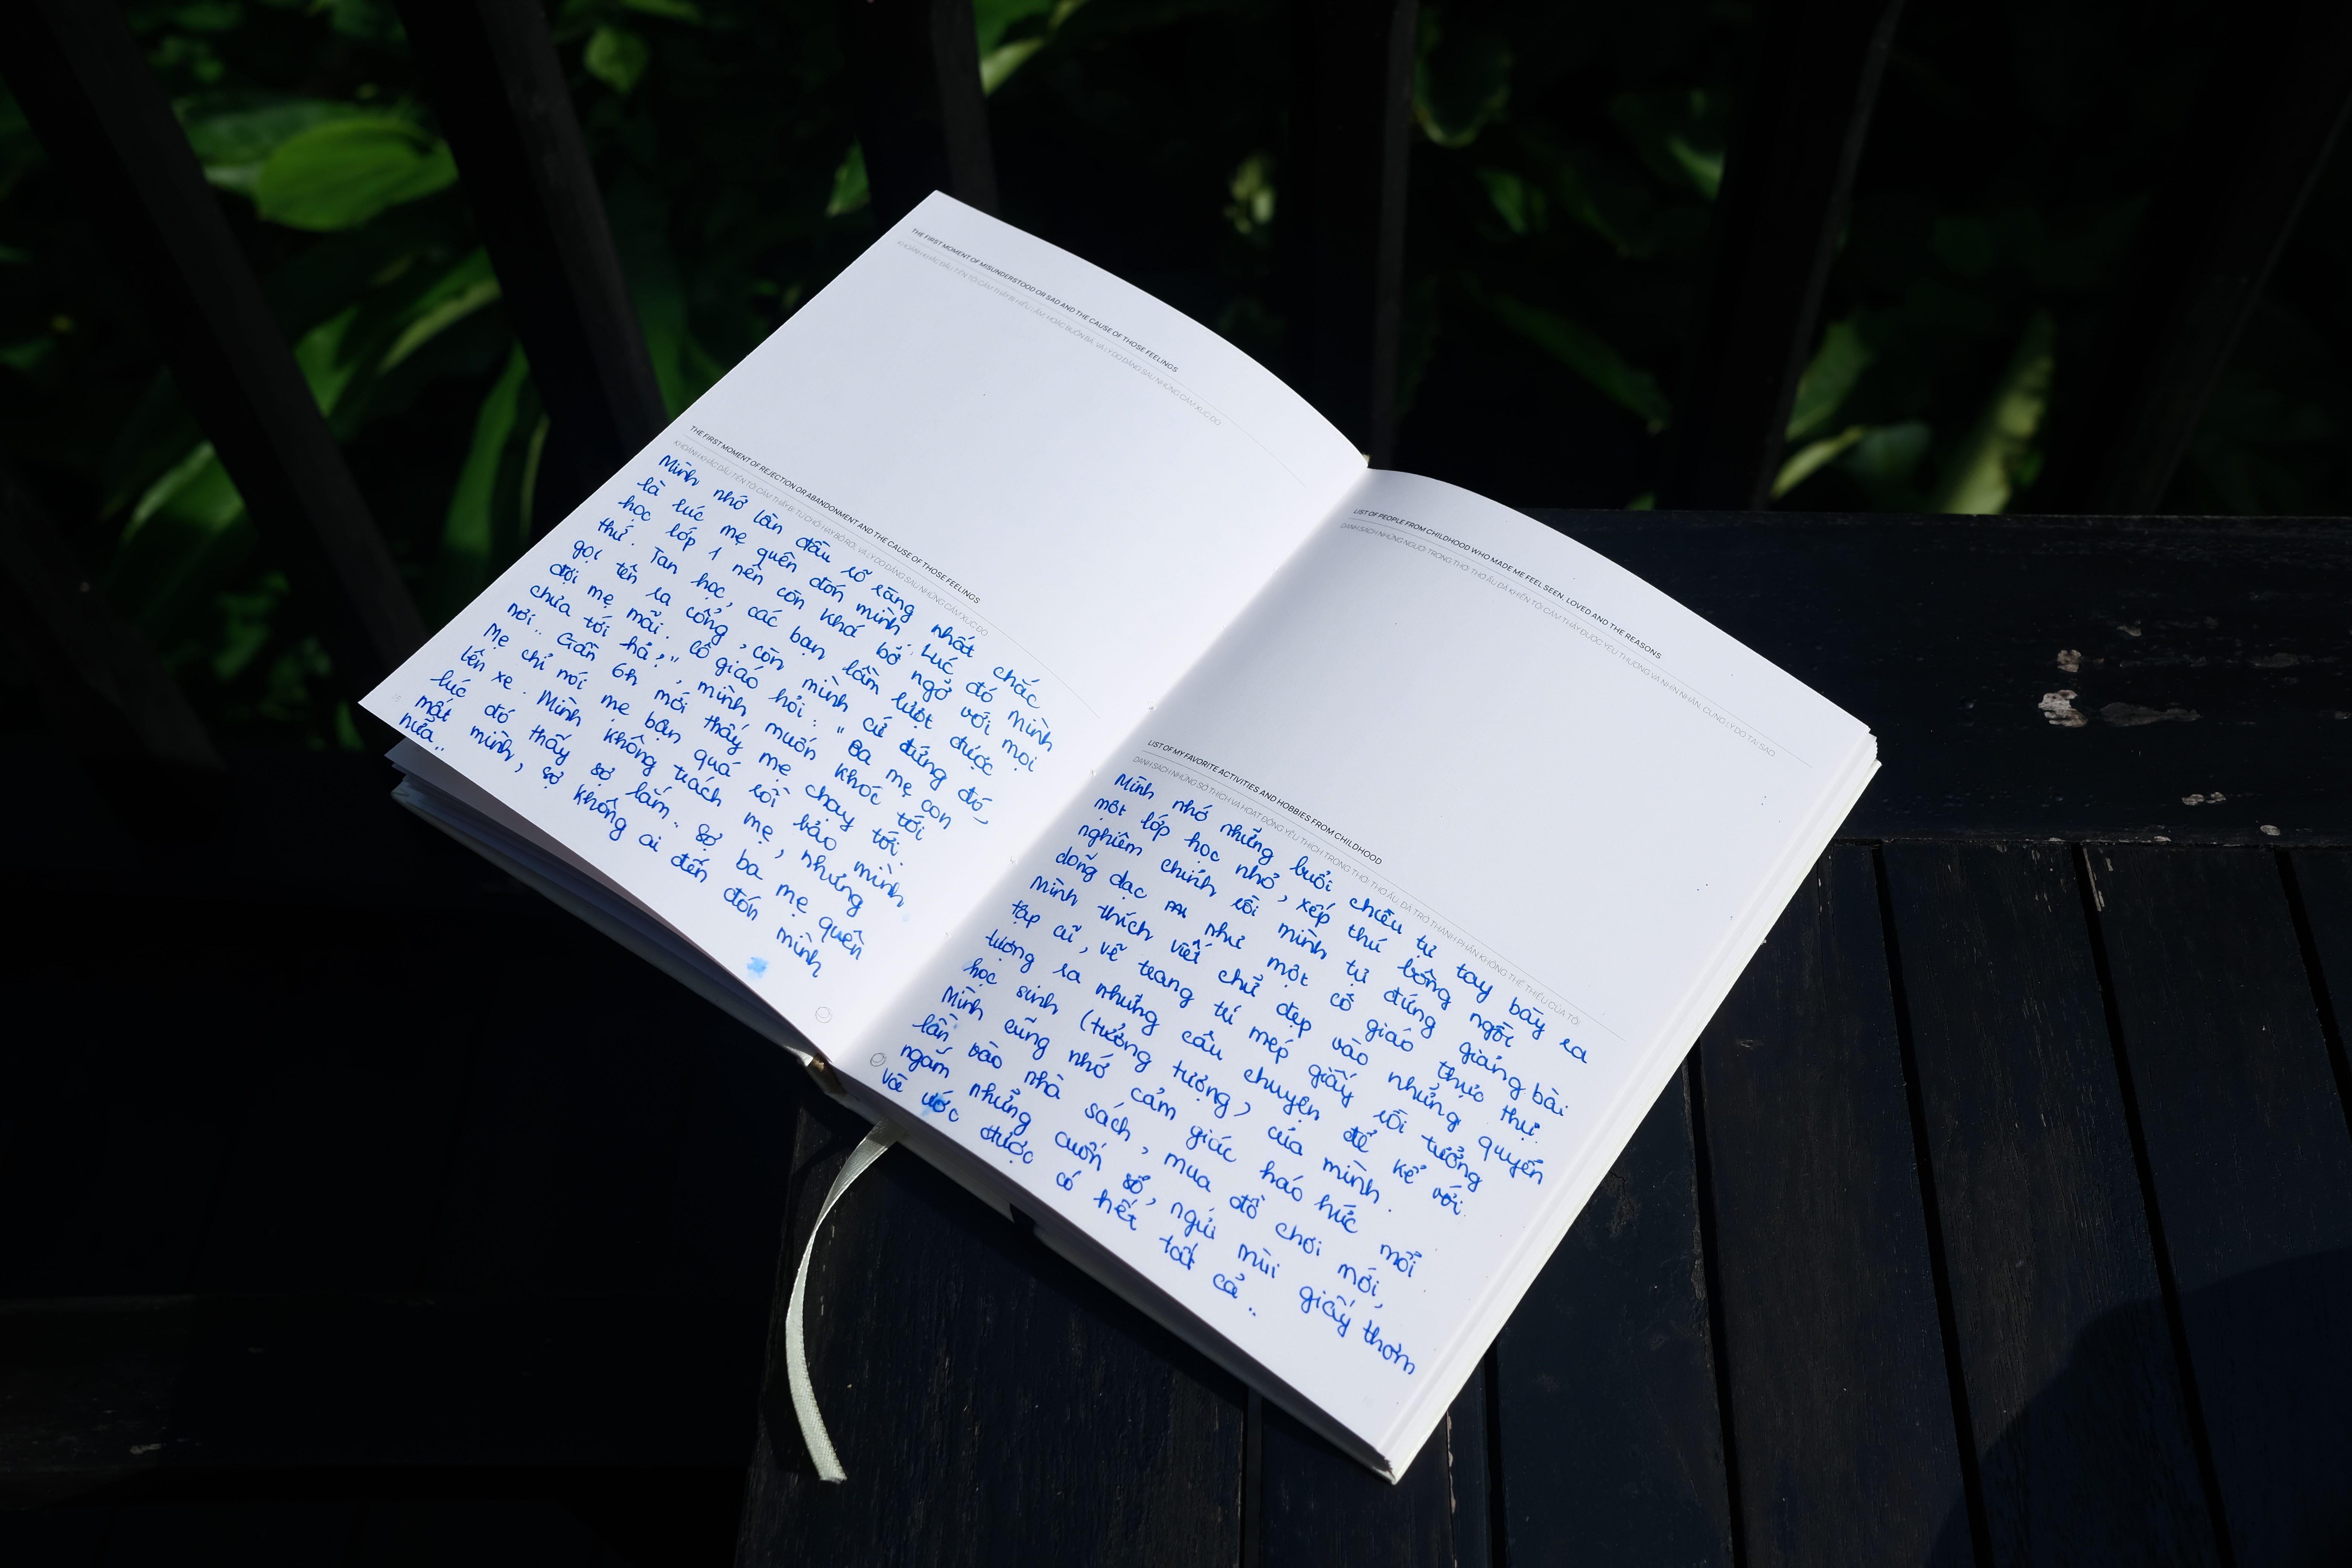 THE FIRST MOMENT OF MISUNDERSTOOD OR SAD AND THE CAUSE OF THOSE FEELINGS
KHOẢNH KHẮC ĐẦU TIÊN TÔI CẢM THẤY BỊ HIỂU LẦM, HOẶC BUỒN BÃ, VÀ LÝ DO ĐẰNG SAU NHỮNG CẢM XÚC ĐÓ
THE FIRST MOMENT OF REJECTION OR ABANDONMENT AND THE CAUSE OF THOSE FEELINGS
KHOẢNH KHẮC ĐẦU TIÊN TÔI CẢM THẤY BỊ TỪ CHỐI HAY BỎ RƠI, VÀ LÝ DO ĐẰNG SAU NHỮNG CẢM XÚC ĐÓ
Mình nhớ lần đầu rõ ràng nhất chắc
là lúc mẹ quên đón mình. Lúc đó mình
học lớp 1 nên còn khá bỡ ngỡ với mọi
thứ. Tan học, các bạn lần lượt được
gọi tên ra cổng, còn mình cứ đứng đó,
đợi mẹ mãi. Cô giáo hỏi: "Ba mẹ con
chưa tới hả?", mình muốn khóc tới
nơi.. Gần 6h mới thấy mẹ chạy tới.
Mẹ chỉ nói mẹ bận quá rồi bảo mình
lên xe. Mình không trách mẹ, nhưng
lúc đó thấy sợ lắm.. Sợ ba mẹ quên
mất mình, sợ không ai đến đón mình
nữa..
LIST OF PEOPLE FROM CHILDHOOD WHO MADE ME FEEL SEEN, LOVED AND THE REASONS
DANH SÁCH NHỮNG NGƯỜI TRONG THỜI THƠ ẤU ĐÃ KHIẾN TÔI CẢM THẤY ĐƯỢC YÊU THƯƠNG VÀ NHÌN NHẬN, CÙNG LÝ DO TẠI SAO
LIST OF MY FAVORITE ACTIVITIES AND HOBBIES FROM CHILDHOOD
DANH SÁCH NHỮNG SỞ THÍCH VÀ HOẠT ĐỘNG YÊU THÍCH TRONG THỜI THƠ ẤU, ĐÃ TRỞ THÀNH PHẦN KHÔNG THỂ THIẾU CỦA TÔI
Mình nhớ những buổi chiều tự tay bày ra
một lớp học nhỏ, xếp thú bông ngồi
nghiêm chỉnh rồi mình tự đứng giảng bài
dõng dạc như một cô giáo thực thụ.
Mình thích viết chữ đẹp vào những quyển
tập cũ, vẽ trang trí mép giấy rồi tưởng
tượng ra những câu chuyện để kể với
học sinh (tưởng tượng) của mình.
Mình cũng nhớ cảm giác háo hức mỗi
lần vào nhà sách, mua đồ chơi mới,
ngắm những cuốn sổ, ngửi mùi giấy thơm
và ước được có hết tất cả..